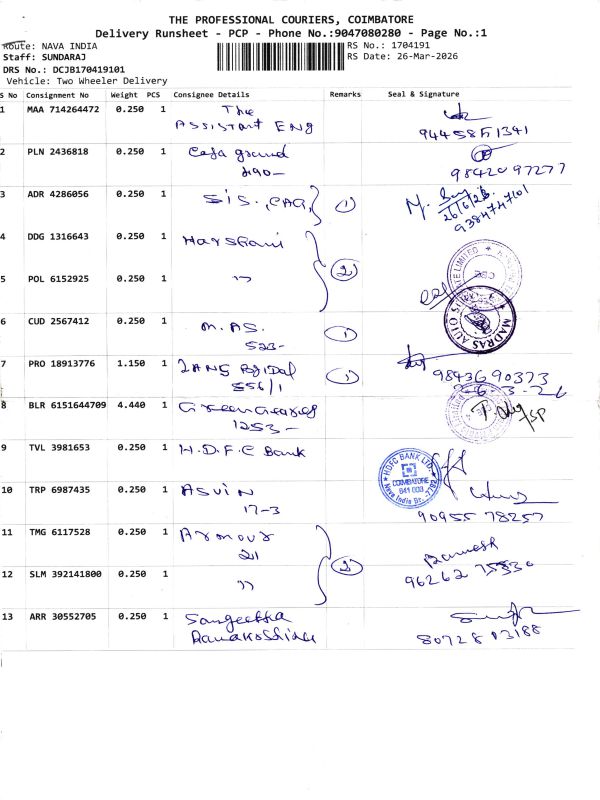 THE PROFESSIONAL COURIERS, COIMBATORE
Delivery Runsheet - PCP - Phone No.:9047080280 - Page No.:1
Route: NAVA INDIA
RS No.: 1704191
Staff: SUNDARAJ
RS Date: 26-Mar-2026
DRS No.: DCJB170419101
Vehicle: Two Wheeler Delivery
S No Consignment No Weight PCS Consignee Details Remarks Seal & Signature
1 MAA 714264472 0.250 1 The
Assistant Eng
2 PLN 2436818 0.250 1
490-
9842097277
3 ADR 4286056 0.250 1 SIS.,
1
9384747101
4 DDG 1316643 0.250 1 Harshani
2
5 POL 6152925 0.250 1 "
MADRAS AUTO
6 CUD 2567412 0.250 1 M.AS.
523-
1
7 PRO 18913776 1.150 1
556/1
1
9843690373
8 BLR 6151644709 4.440 1 Green Gears
1253-
9 TVL 3981653 0.250 1 H.D.F.C Bank
HDFC BANK LTD.
COIMBATORE
641 008
10 TRP 6987435 0.250 1 Asvin
17-3
90955 78257
11 TMG 6117528 0.250 1 Armour
21
2
12 SLM 392141800 0.250 1 "
13 ARR 30552705 0.250 1 Sangeetha